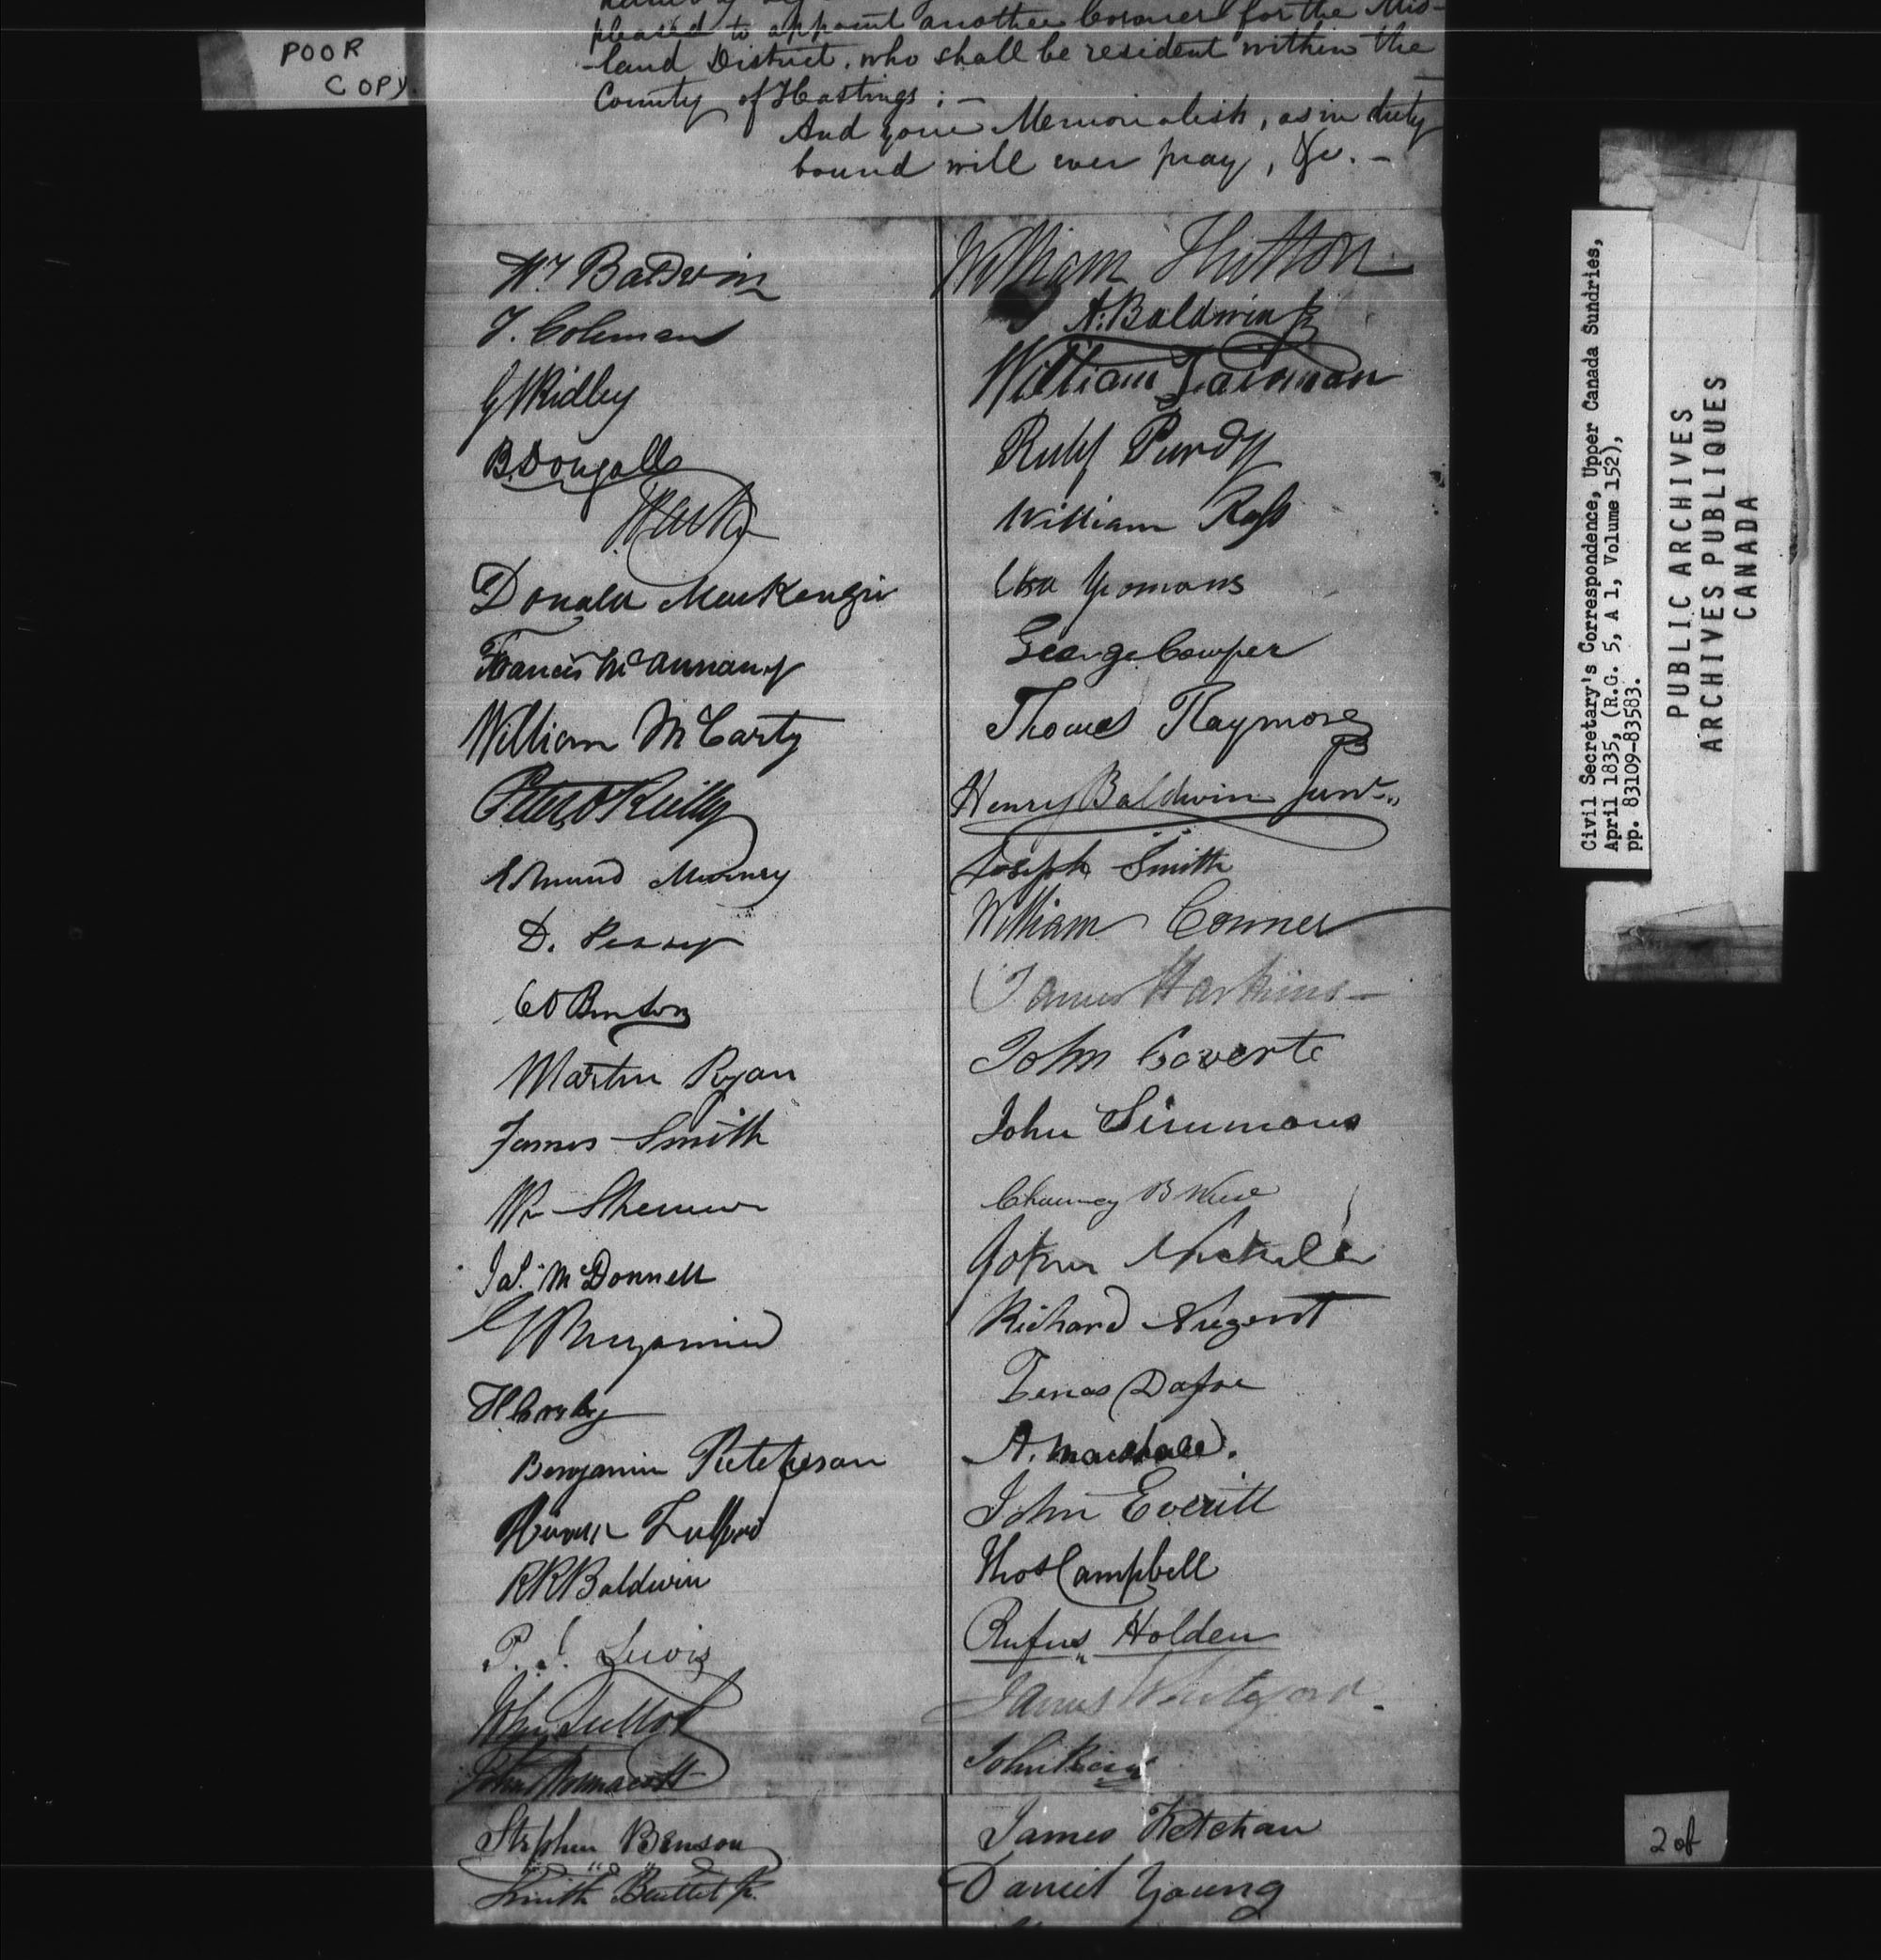 POOR
COPY
pleased to appoint another Coroner for the Mid-
-land District, who shall be resident within the
County of Hastings; -
And your Memorialists, as in duty
bound will ever pray, &c. -
Wm Baldwin
T. Coleman
G Ridley
B. Dougall
Donald MacKenzie
Francis McAnnany
William McCarty
Peter O'Reilly
Edmund Murney
D. Perry
Benton
Martin Ryan
James Smith
Jas. McDonnell
G Benjamin
Benjamin
R R Baldwin
P. Lewis
John
John
Stephen Benson
Smith Jr.
William Hutton
A. Baldwin
William
Rulif Purdy
William Ross
Asa Yeomans
George Cowper
Thomas Raymore
Henry Baldwin Junr.
Joseph Smith
William Conner
James Harkins -
John Coverte
John Simmons
Chauncy B
John
Richard Nugent
Zenas Dafoe
A. Marshall.
John Everitt
Thos Campbell
Rufus Holden
James
John
James Ketchan
Daniel Young
Civil Secretary's Correspondence, Upper Canada Sundries,
April 1835, (R.G. 5, A 1, Volume 152),
pp. 83109-83583.
PUBLIC ARCHIVES
ARCHIVES PUBLIQUES
CANADA
2 of